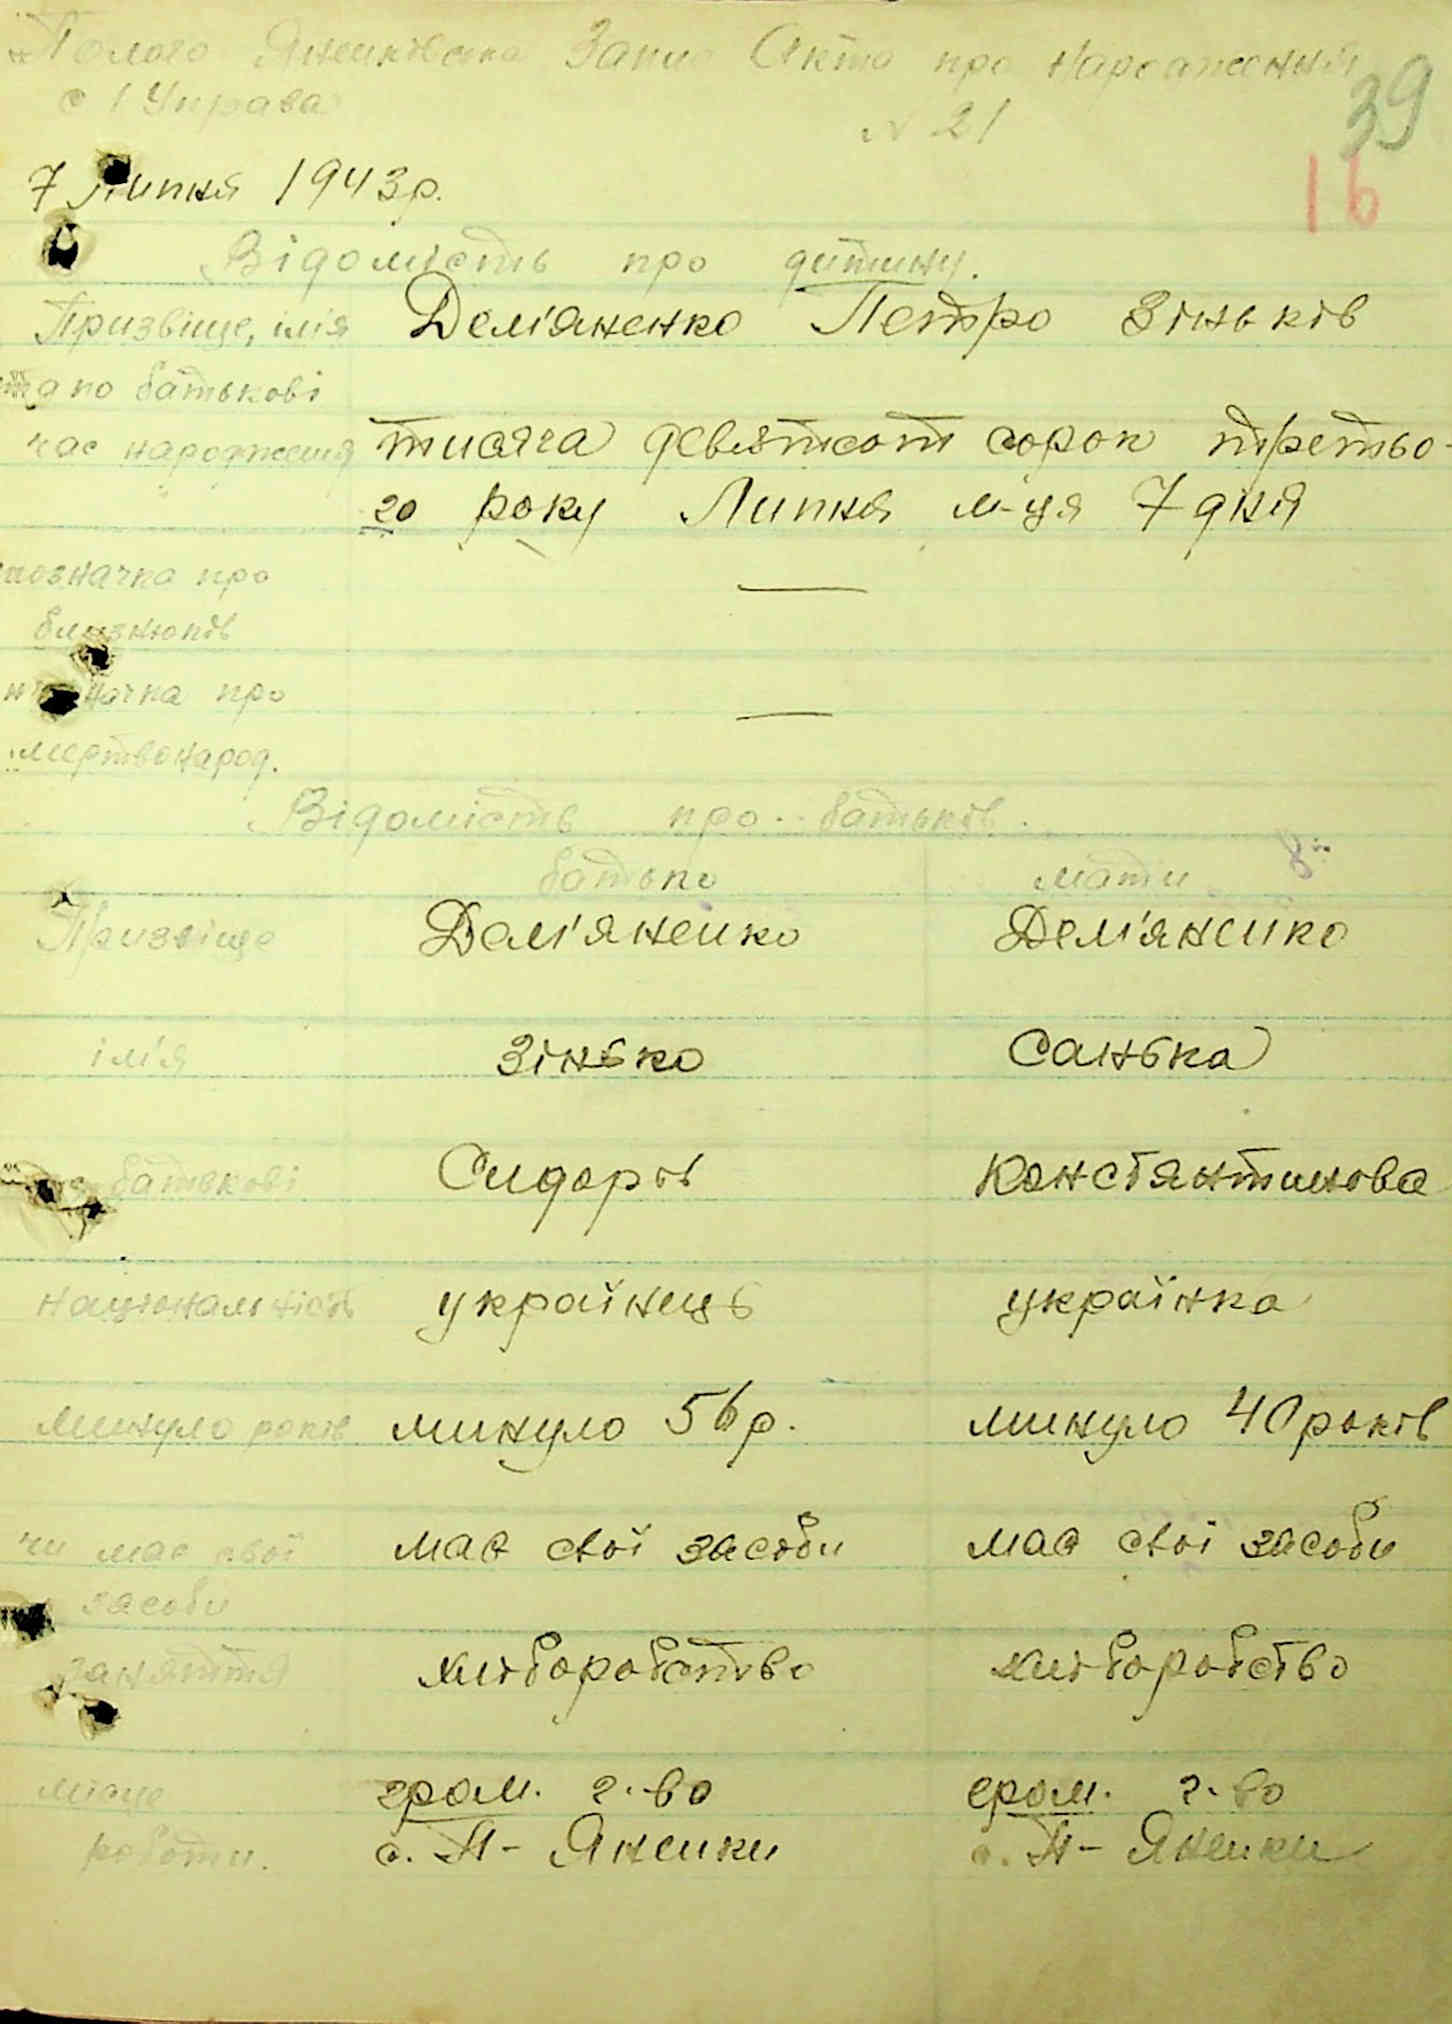 Полого Яненківська Запис Акта про народження
с/Управа № 21
39
16
7 Липня 1943 р.
Відомість про дитину.
Призвіще, імія Дем'яненко Петро Зіньків
та по батькові
час народження тисяча девятсот сорок третьо-
го року Липня м-ця 7 дня
позначка про —
близнюків
позначка про —
мертвонарод.
Відомість про батьків.
батько мати
Призвіще Дем'яненко Дем'яненко
імія Зінько Санька
по батькові Сидорів Констянтинова
національність українець українка
минуло років минуло 56 р. минуло 40 років
чи має свої має свої засоби має свої засоби
засоби
заняття хліборобство хліборобство
місце гром. г-во гром. г-во
роботи. с. П-Яненки с. П-Яненки